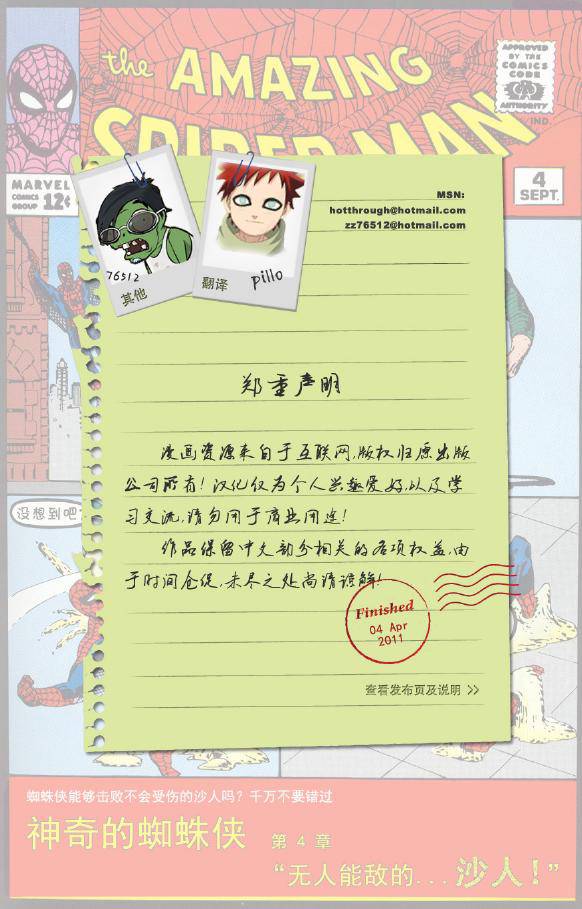 the AMAZING
SPIDER-MAN
APPROVED
BY THE
COMICS
CODE
CA
AUTHORITY
IND.
MARVEL
COMICS
GROUP 12¢
4
SEPT.
MSN:
hotthrough@hotmail.com
zz76512@hotmail.com
76512
其他
翻译 pillo
郑重声明
漫画资源来自于互联网,版权归原出版
公司所有!汉化仅为个人兴趣爱好,以及学
习交流,请勿用于商业用途!
作品保留中文部分相关的各项权益,由
于时间仓促,未尽之处尚请谅解!
Finished
04 Apr
2011
查看发布页及说明 >>
没想到吧
蜘蛛侠能够击败不会受伤的沙人吗?千万不要错过
神奇的蜘蛛侠 第 4 章
“无人能敌的...沙人!”